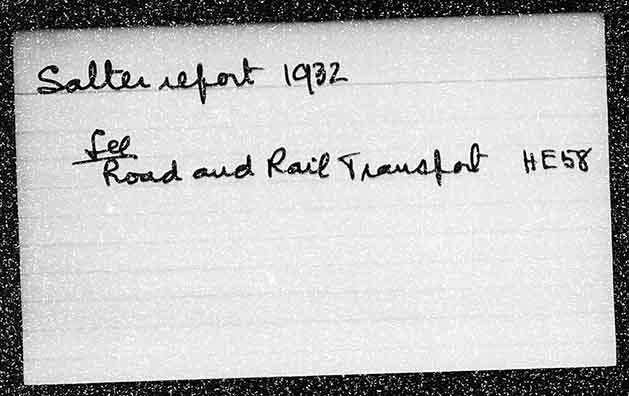 Salter report 1932
See
Road and Rail Transport HE58